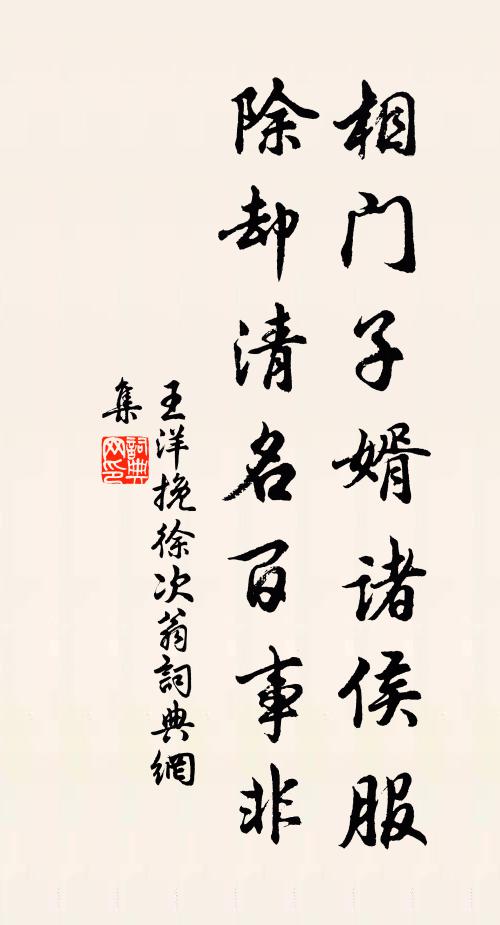 相门子婿诸侯服
除却清名百事非
王洋挽徐次翁詞典網
集
詞典网印